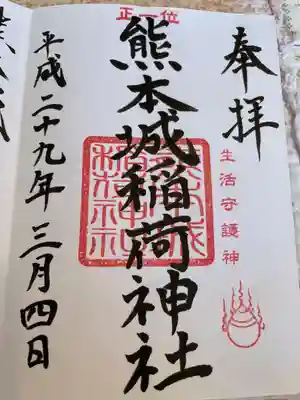 奉拝
生活守護神
正一位
熊本城稲荷神社
平成二十九年三月四日